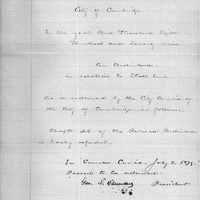 City of Cambridge
In the year One Thousand Eight
Hundred and Seventy-nine
An Ordinance
in relation to State
Be it ordained by the City Council of
the City of Cambridge as follows:
Chapter 26 of the Revised Ordinances
is hereby repealed.
In Common Council, July 2 1879.
Passed to be ordained.
Geo. S. President